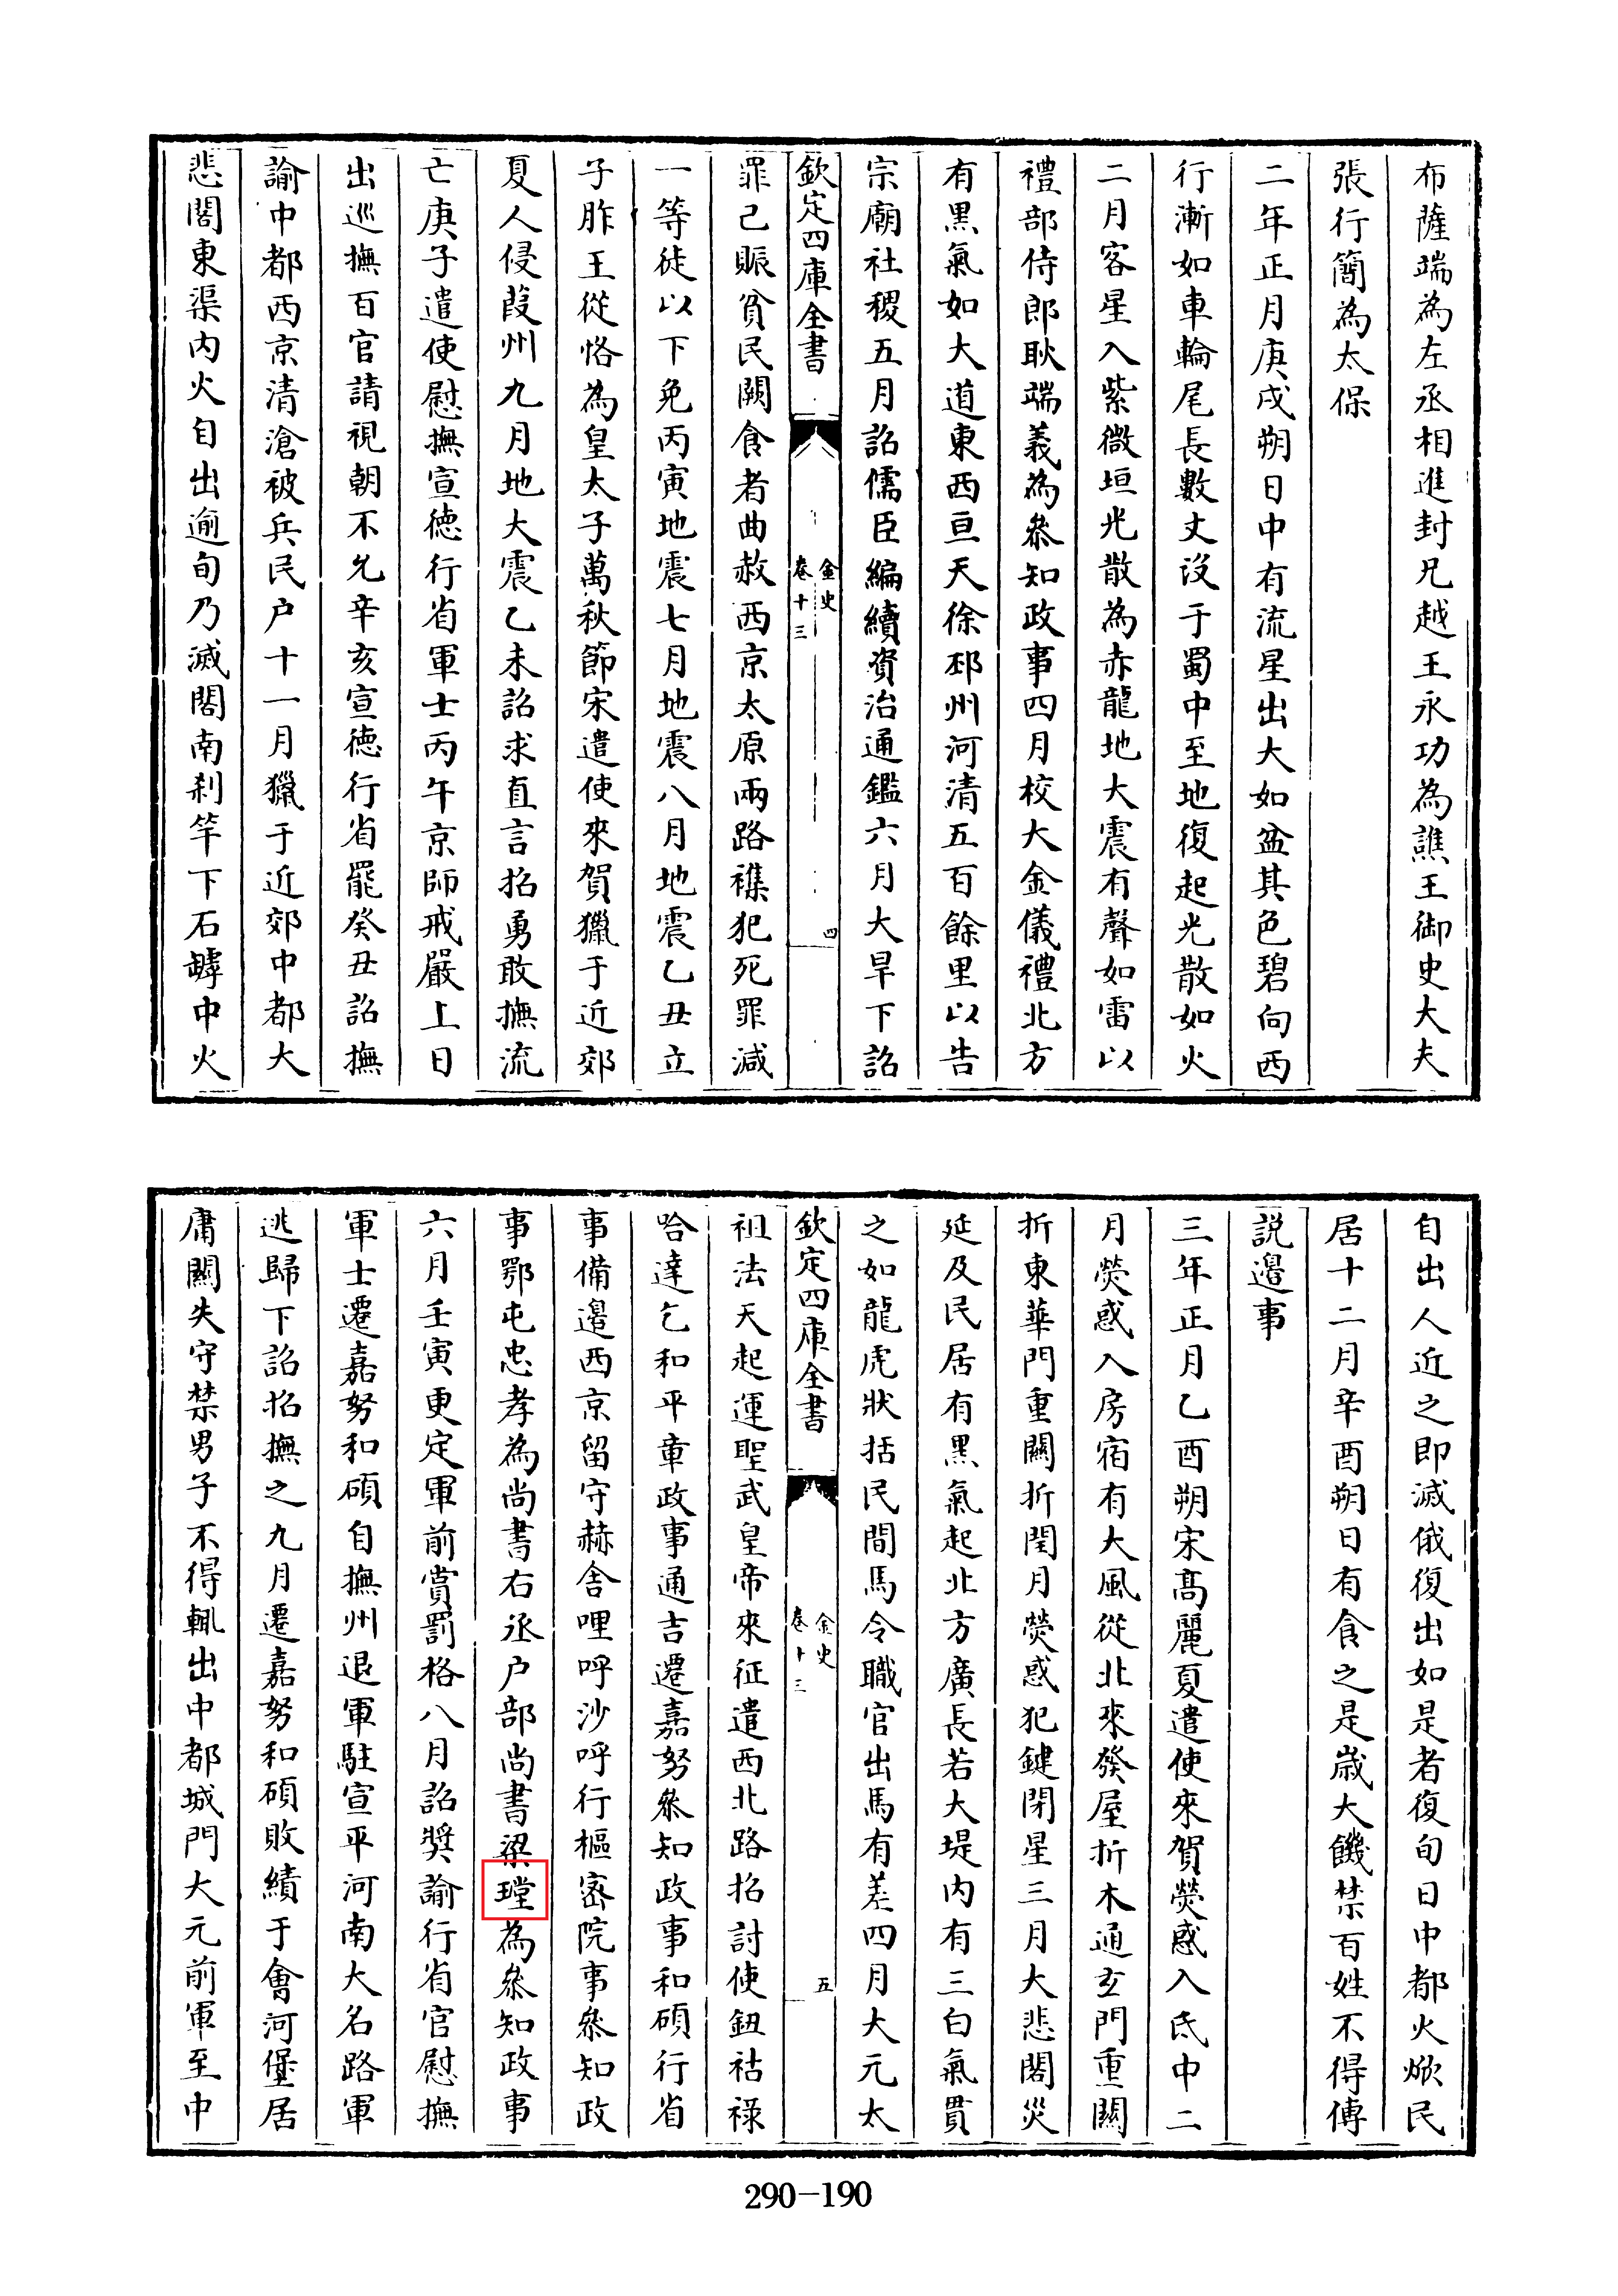 布薩端為左丞相進封兄越王永功為譙王御史大夫
張行簡為太保
二年正月庚戌朔日中有流星出大如盆其色碧向西
行漸如車輪尾長數丈沒于蜀中至地復起光散如火
二月客星入紫微垣光散為赤龍地大震有聲如雷以
禮部侍郎耿端義為叅知政事四月校大金儀禮北方
有黑氣如大道東西亘天徐邳州河清五百餘里以告
宗廟社稷五月詔儒臣編續資治通鑑六月大旱下詔
欽定四庫全書
金史
卷十三
四
罪己賑貧民闕食者曲赦西京太原兩路襍犯死罪減
一等徒以下免丙寅地震七月地震八月地震乙丑立
子胙王從恪為皇太子萬秋節宋遣使來賀獵于近郊
夏人侵葭州九月地大震乙未詔求直言招勇敢撫流
亡庚子遣使慰撫宣德行省軍士丙午京師戒嚴上日
出巡撫百官請視朝不允辛亥宣徳行省罷癸丑詔撫
諭中都西京清滄被兵民户十一月獵于近郊中都大
悲閣東渠内火自出逾旬乃滅閣南刹竿下石罅中火
自出人近之即滅俄復出如是者復旬日中都火焮民
居十二月辛酉朔日有食之是歲大饑禁百姓不得傳
説邉事
三年正月乙酉朔宋髙麗夏遣使來賀熒惑入氐中二
月熒惑入房宿有大風從北來發屋折木通玄門重關
折東華門重關折閏月熒惑犯鍵閉星三月大悲閣災
延及民居有黑氣起北方廣長若大堤内有三白氣貫
之如龍虎狀括民間馬令職官出馬有差四月大元太
欽定四庫全書
金史
卷十三
五
祖法天起運聖武皇帝來征遣西北路招討使鈕祜禄
哈達乞和平章政事通吉遷嘉努叅知政事和碩行省
事備邉西京留守赫舎哩呼沙呼行樞密院事叅知政
事鄂屯忠孝為尚書右丞户部尚書梁為叅知政事
六月壬寅更定軍前賞罰格八月詔奬諭行省官慰撫
軍士遷嘉努和碩自撫州退軍駐宣平河南大名路軍
逃歸下詔招撫之九月遷嘉努和碩敗績于會河堡居
庸關失守禁男子不得輒出中都城門大元前軍至中
290-190